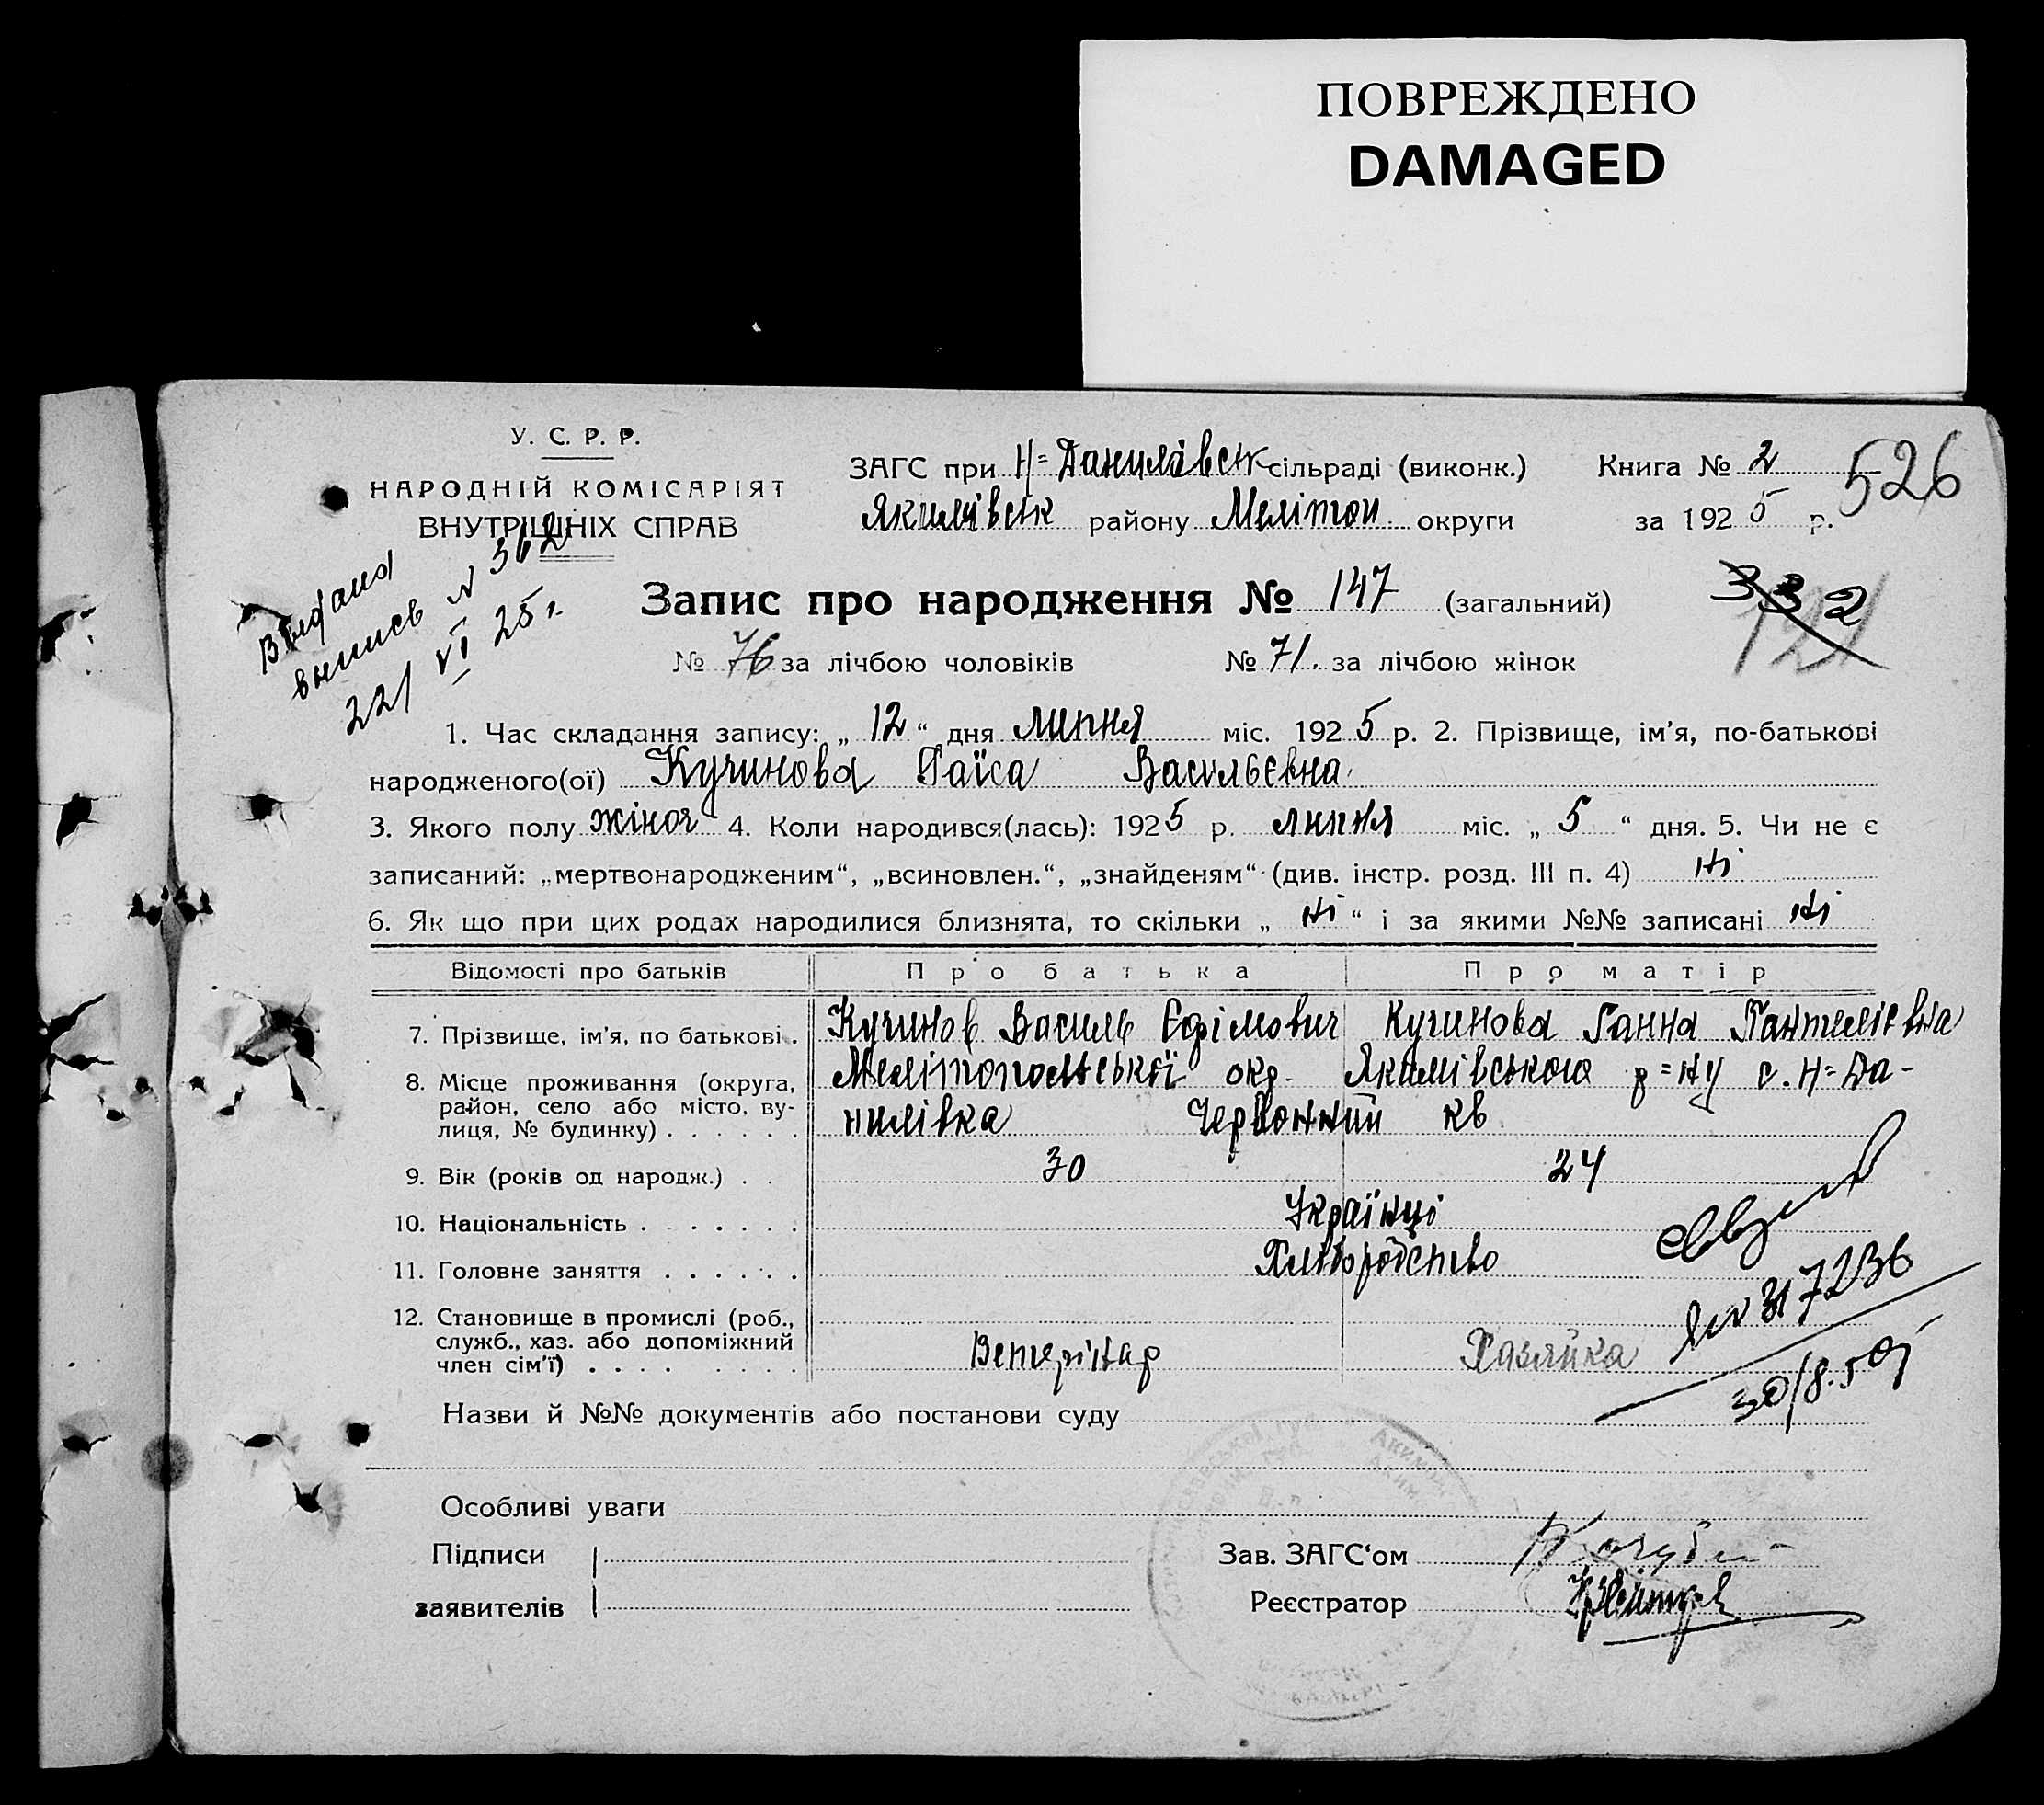 ПОВРЕЖДЕНО
DAMAGED
У. С. Р. Р.
НАРОДНІЙ КОМІСАРІЯТ
ВНУТРІШНІХ СПРАВ
ЗАГС при Н=Данилівськ сільраді (виконк.) Книга № 2
526
Якимівськ району Мелітоп. округи за 1925 р.
Видана
випись № 362
22/VI 25 г.
Запис про народження № 147 (загальний)
332
121
№ 76 за лічбою чоловіків № 71. за лічбою жінок
1. Час складання запису: „ 12 “ дня липня міс. 1925 р. 2. Прізвище, ім'я, по-батькові
народженого(ої) Кучинова Раїса Васильєвна
3. Якого полу жіноч 4. Коли народився(лась): 1925 р. липня міс. „ 5 “ дня. 5. Чи не є
записаний: „мертвонародженим“, „всиновлен.“, „знайденям“ (див. інстр. розд. III п. 4) ні
6. Як що при цих родах народилися близнята, то скільки „ ні “ і за якими №№ записані ні
Відомості про батьків Про батька Про матір
7. Прізвище, ім'я, по батькові . Кучинов Василь Єфімович Кучинова Ганна Пантиліевна
8. Місце проживання (округа, Мелітопольської окр. Якимівського р=ну с. Н=Да-
район, село або місто, ву-
лиця, № будинку) . . . . . . нилівка Червонний кв
9. Вік (років од народж.) . . 30 24
10. Національність . . . . . . . Українці
11. Головне заняття . . . . . . Хліборобство
№ 317236
12. Становище в промислі (роб.,
служб., хаз. або допоміжний Ветерінар Хазяйка
член сім'ї) . . . . . . . .
30/8.50
Назви й №№ документів або постанови суду
Особливі уваги
Підписи
Зав. ЗАГС‘ом
заявителів
Реєстратор